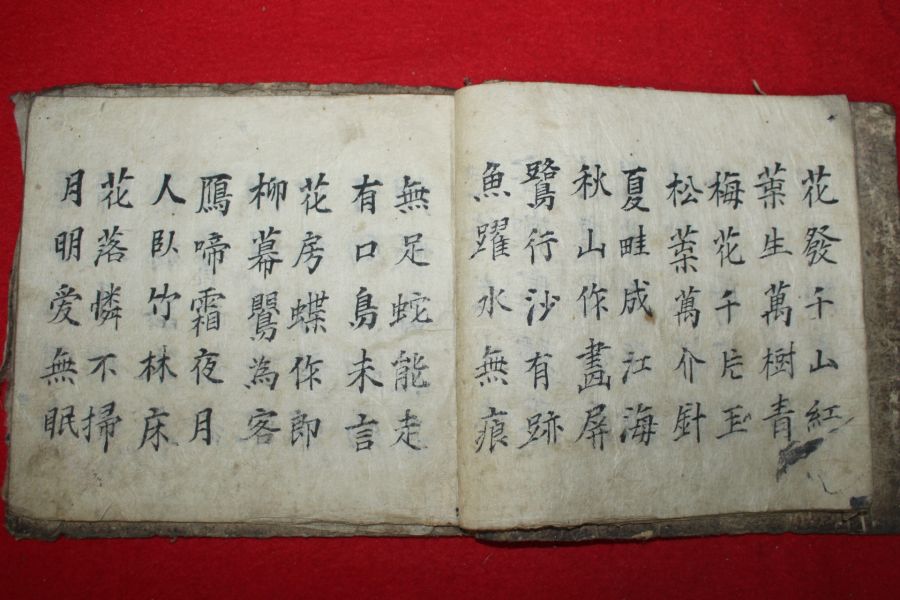 花發千山紅
葉生萬樹青
梅花千片玉
松葉萬介針
夏畦成江海
秋山作畵屏
鷺行沙有跡
魚躍水無痕
無足蛇能走
有口鳥未言
花房蝶作即
柳幕鸎為客
鴈啼霜夜月
人臥竹林床
花落憐不掃
月明愛無眠